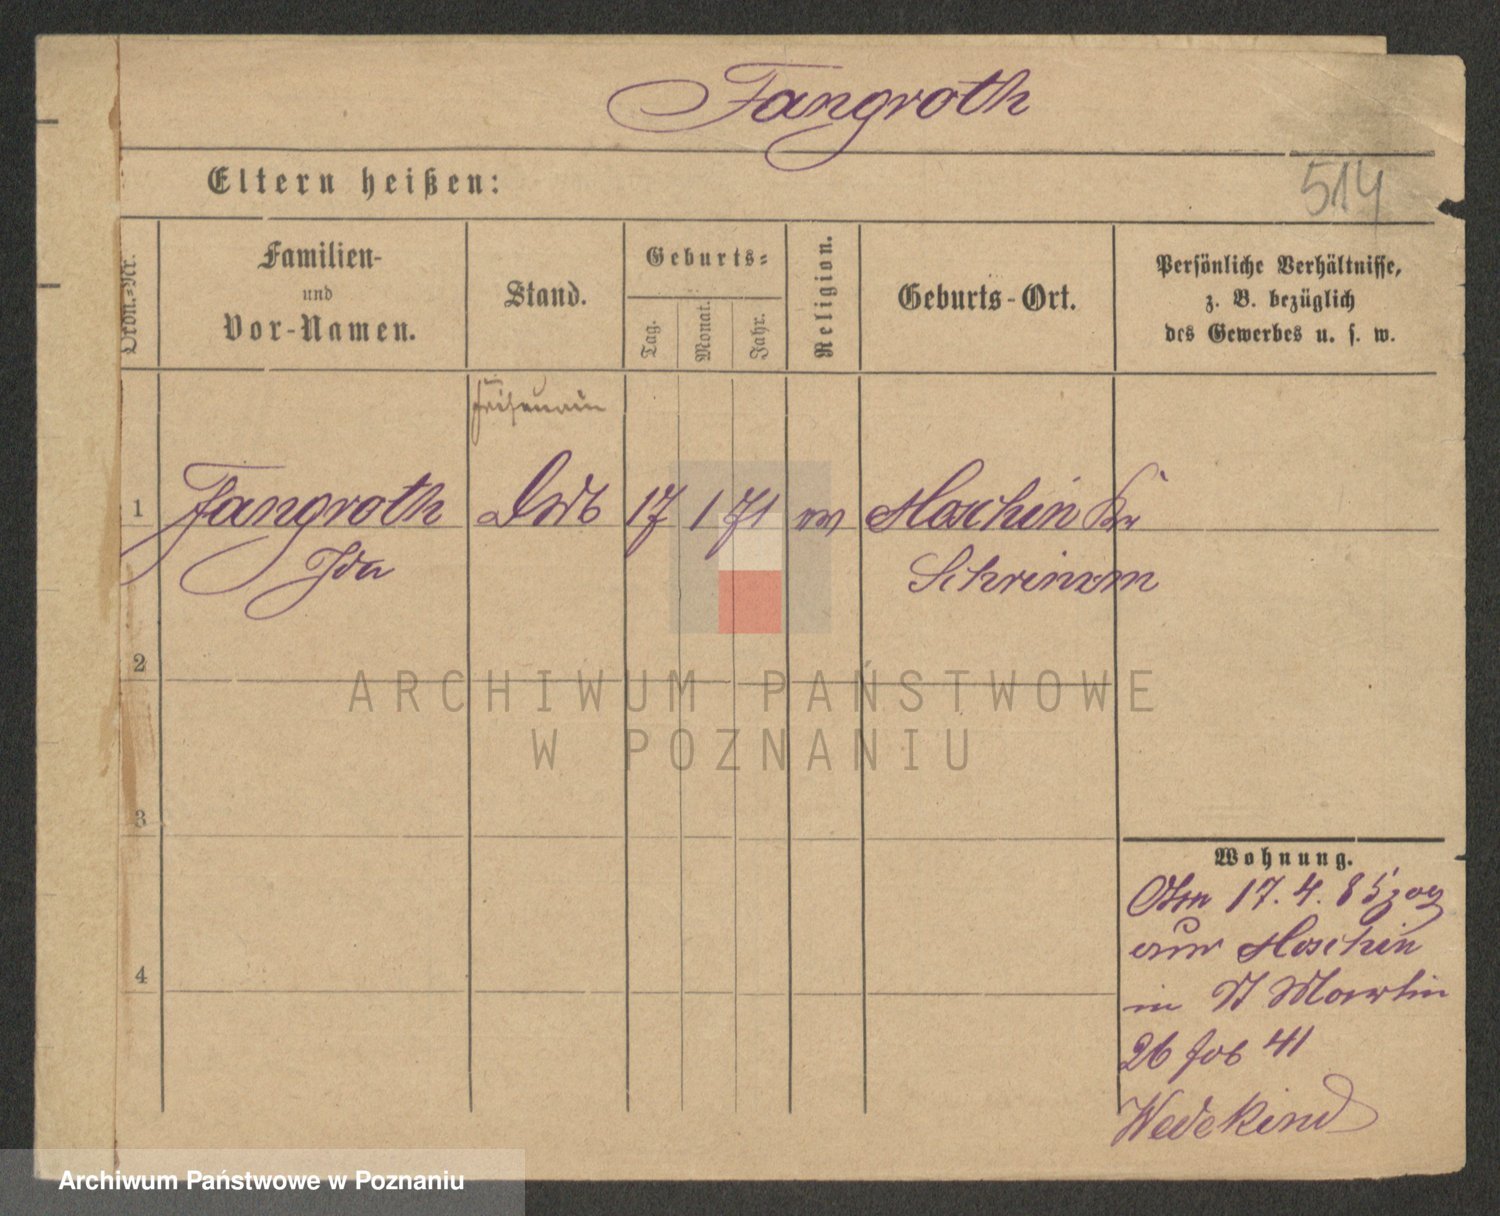 Fangroth
514
Eltern heißen:
Ordn.-Nr.
Familien-
und
Vor-Namen.
Stand.
Geburts-
Tag.
Monat.
Jahr.
Religion.
Geburts-Ort.
Persönliche Verhältnisse,
z. B. bezüglich
des Gewerbes u. s. w.
1 Fangroth 17 1 71 Moschin Kr
Ida Schrimm
2
ARCHIWUM PAŃSTWOWE
W POZNANIU
3
4
Wohnung.
17. 4. 85 zog
aus Moschin
in St Martin
26 41
Wedekind
Archiwum Państwowe w Poznaniu